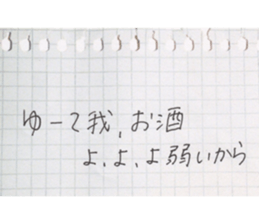 ゆーて我、お酒
よ、よ、よ弱いから